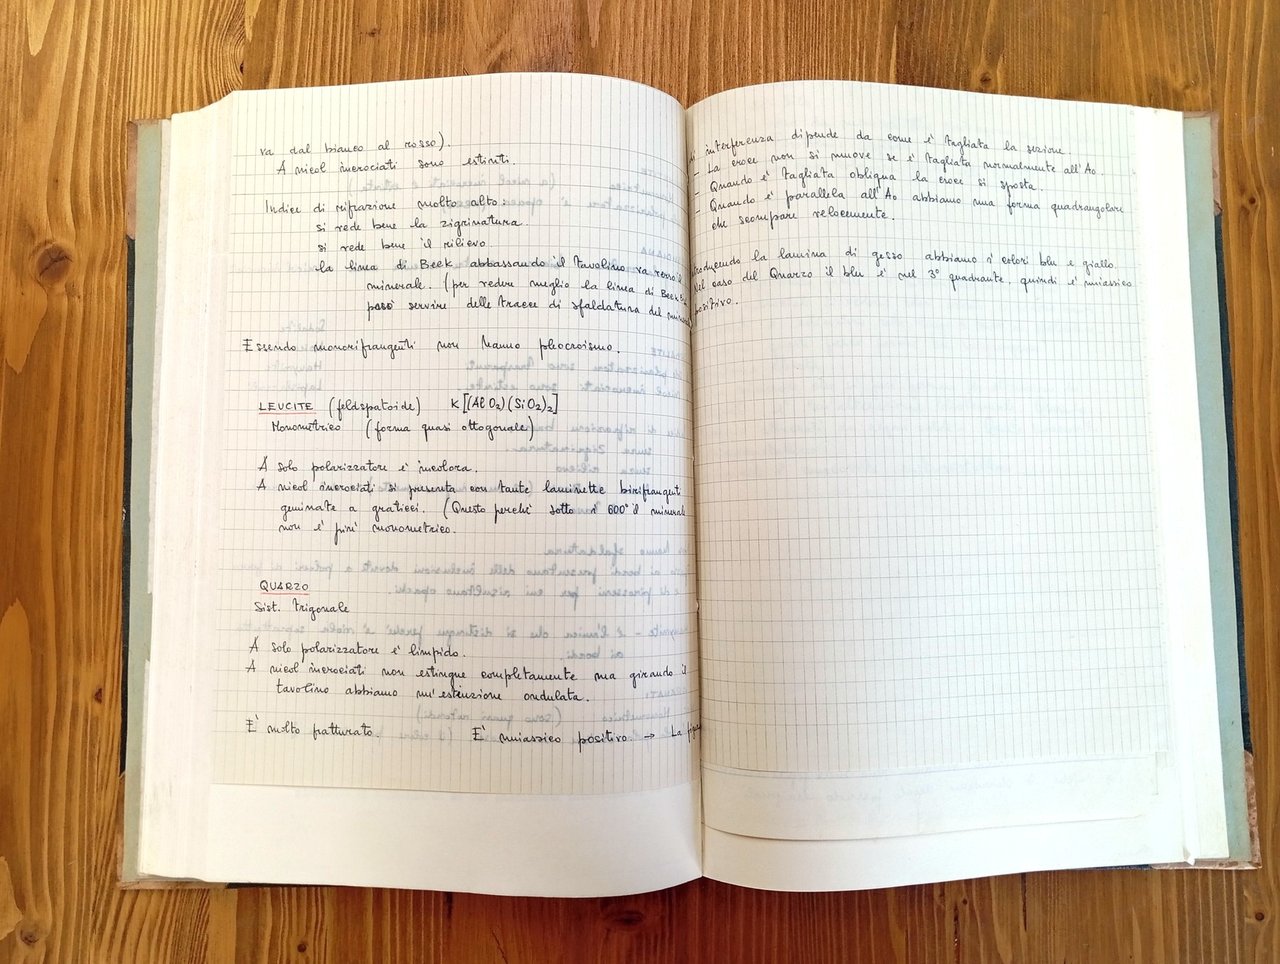 va dal bianco al rosso).
A nicol incrociati sono estinti.
Indice di rifrazione molto alto:
si vede bene la zigrinatura.
si vede bene il rilievo.
la linea di Beek abbassando il tavolino va verso il
minerale. (per vedere meglio la linea di Beek
può servire delle tracce di sfaldatura del
Essendo monorifrangenti non hanno pleocroismo.
LEUCITE (feldspatoide) K[(AlO2)(SiO2)2]
Monometrico (forma quasi ottogonale)
A solo polarizzatore è incolora.
A nicol incrociati si presenta con tante laminette birifrangenti
geminate a graticci. (Questo perché sotto i 600° il minerale
non è più monometrico.
QUARZO
Sist. Trigonale
A solo polarizzatore è limpido.
A nicol incrociati non estingue completamente ma girando il
tavolino abbiamo un'estinzione ondulata.
È molto fratturato È uniassico positivo → La
interferenza dipende da come è tagliata la sezione.
- La croce non si muove se è tagliata normalmente all'Ao.
- Quando è tagliata obliqua la croce si sposta.
- Quando è parallela all'Ao abbiamo una forma quadrangolare
che scompare velocemente.
la lamina di gesso abbiamo i colori blu e giallo.
Nel caso del Quarzo il blu è nel 3° quadrante, quindi è uniassico
positivo.